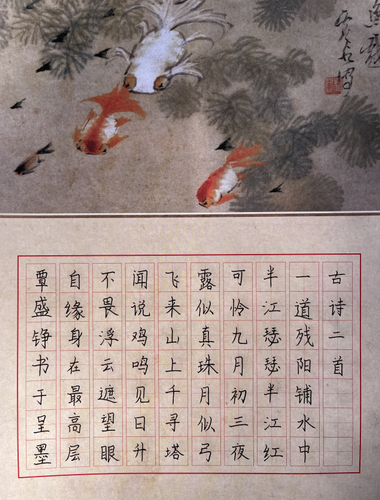 古诗二首
一道残阳铺水中
半江瑟瑟半江红
可怜九月初三夜
露似真珠月似弓
飞来山上千寻塔
闻说鸡鸣见日升
不畏浮云遮望眼
自缘身在最高层
覃盛铮书于呈墨